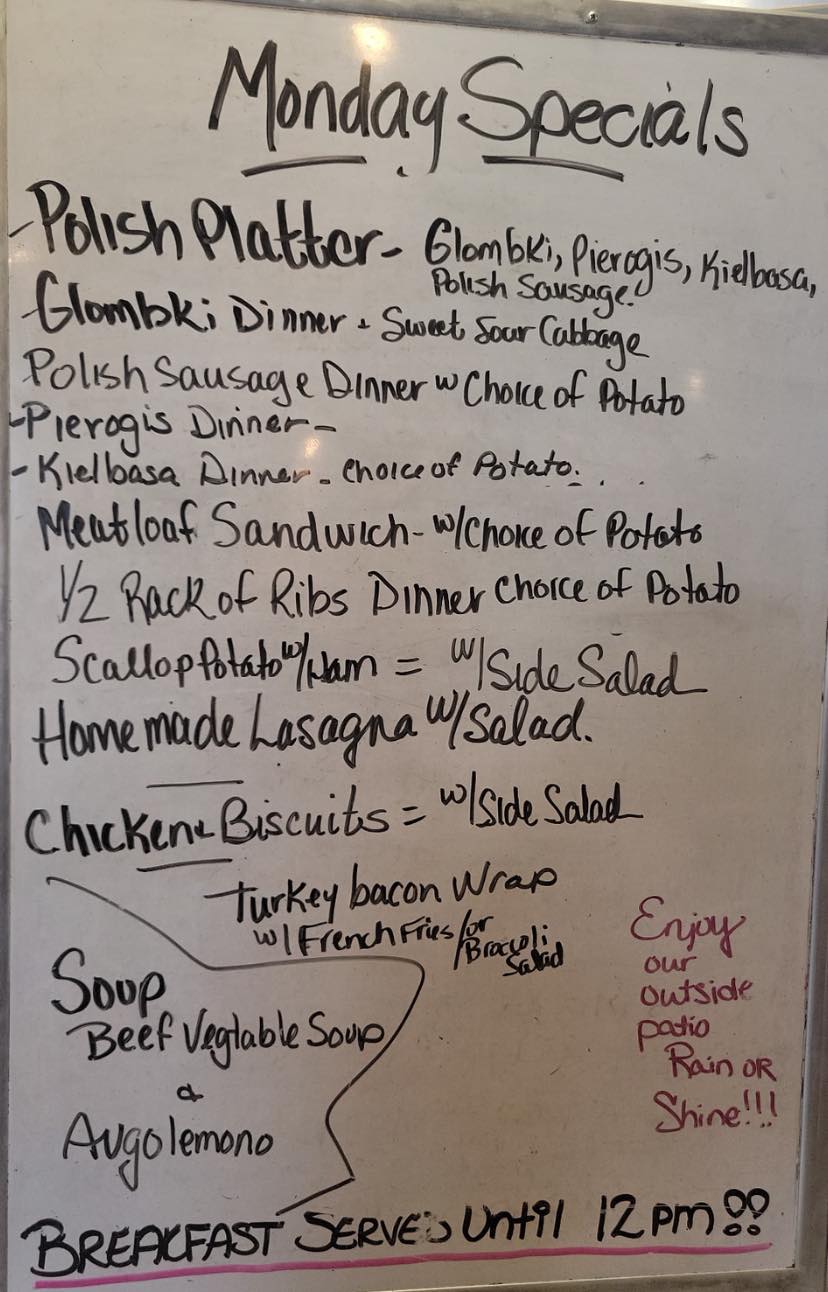 Monday Specials
- Polish Platter - Glombki, Pierogis, Kielbasa,
Polish Sausage.
- Glombki Dinner + Sweet Sour Cabbage
Polish Sausage Dinner w Choice of Potato
- Pierogis Dinner -
- Kielbasa Dinner - Choice of Potato. . . .
Meatloaf Sandwich - w/Choice of Potato
1/2 Rack of Ribs Dinner Choice of Potato
Scallop Potato w/Ham = w/Side Salad
Homemade Lasagna w/Salad.
Chicken & Biscuits = w/Side Salad
Turkey bacon Wrap
w/ French Fries/or
Broccoli
Salad
Soup
Beef Vegtable Soup
&
Augolemono
Enjoy
our
outside
patio
Rain OR
Shine!!!
BREAKFAST SERVES Until 12 pm!!